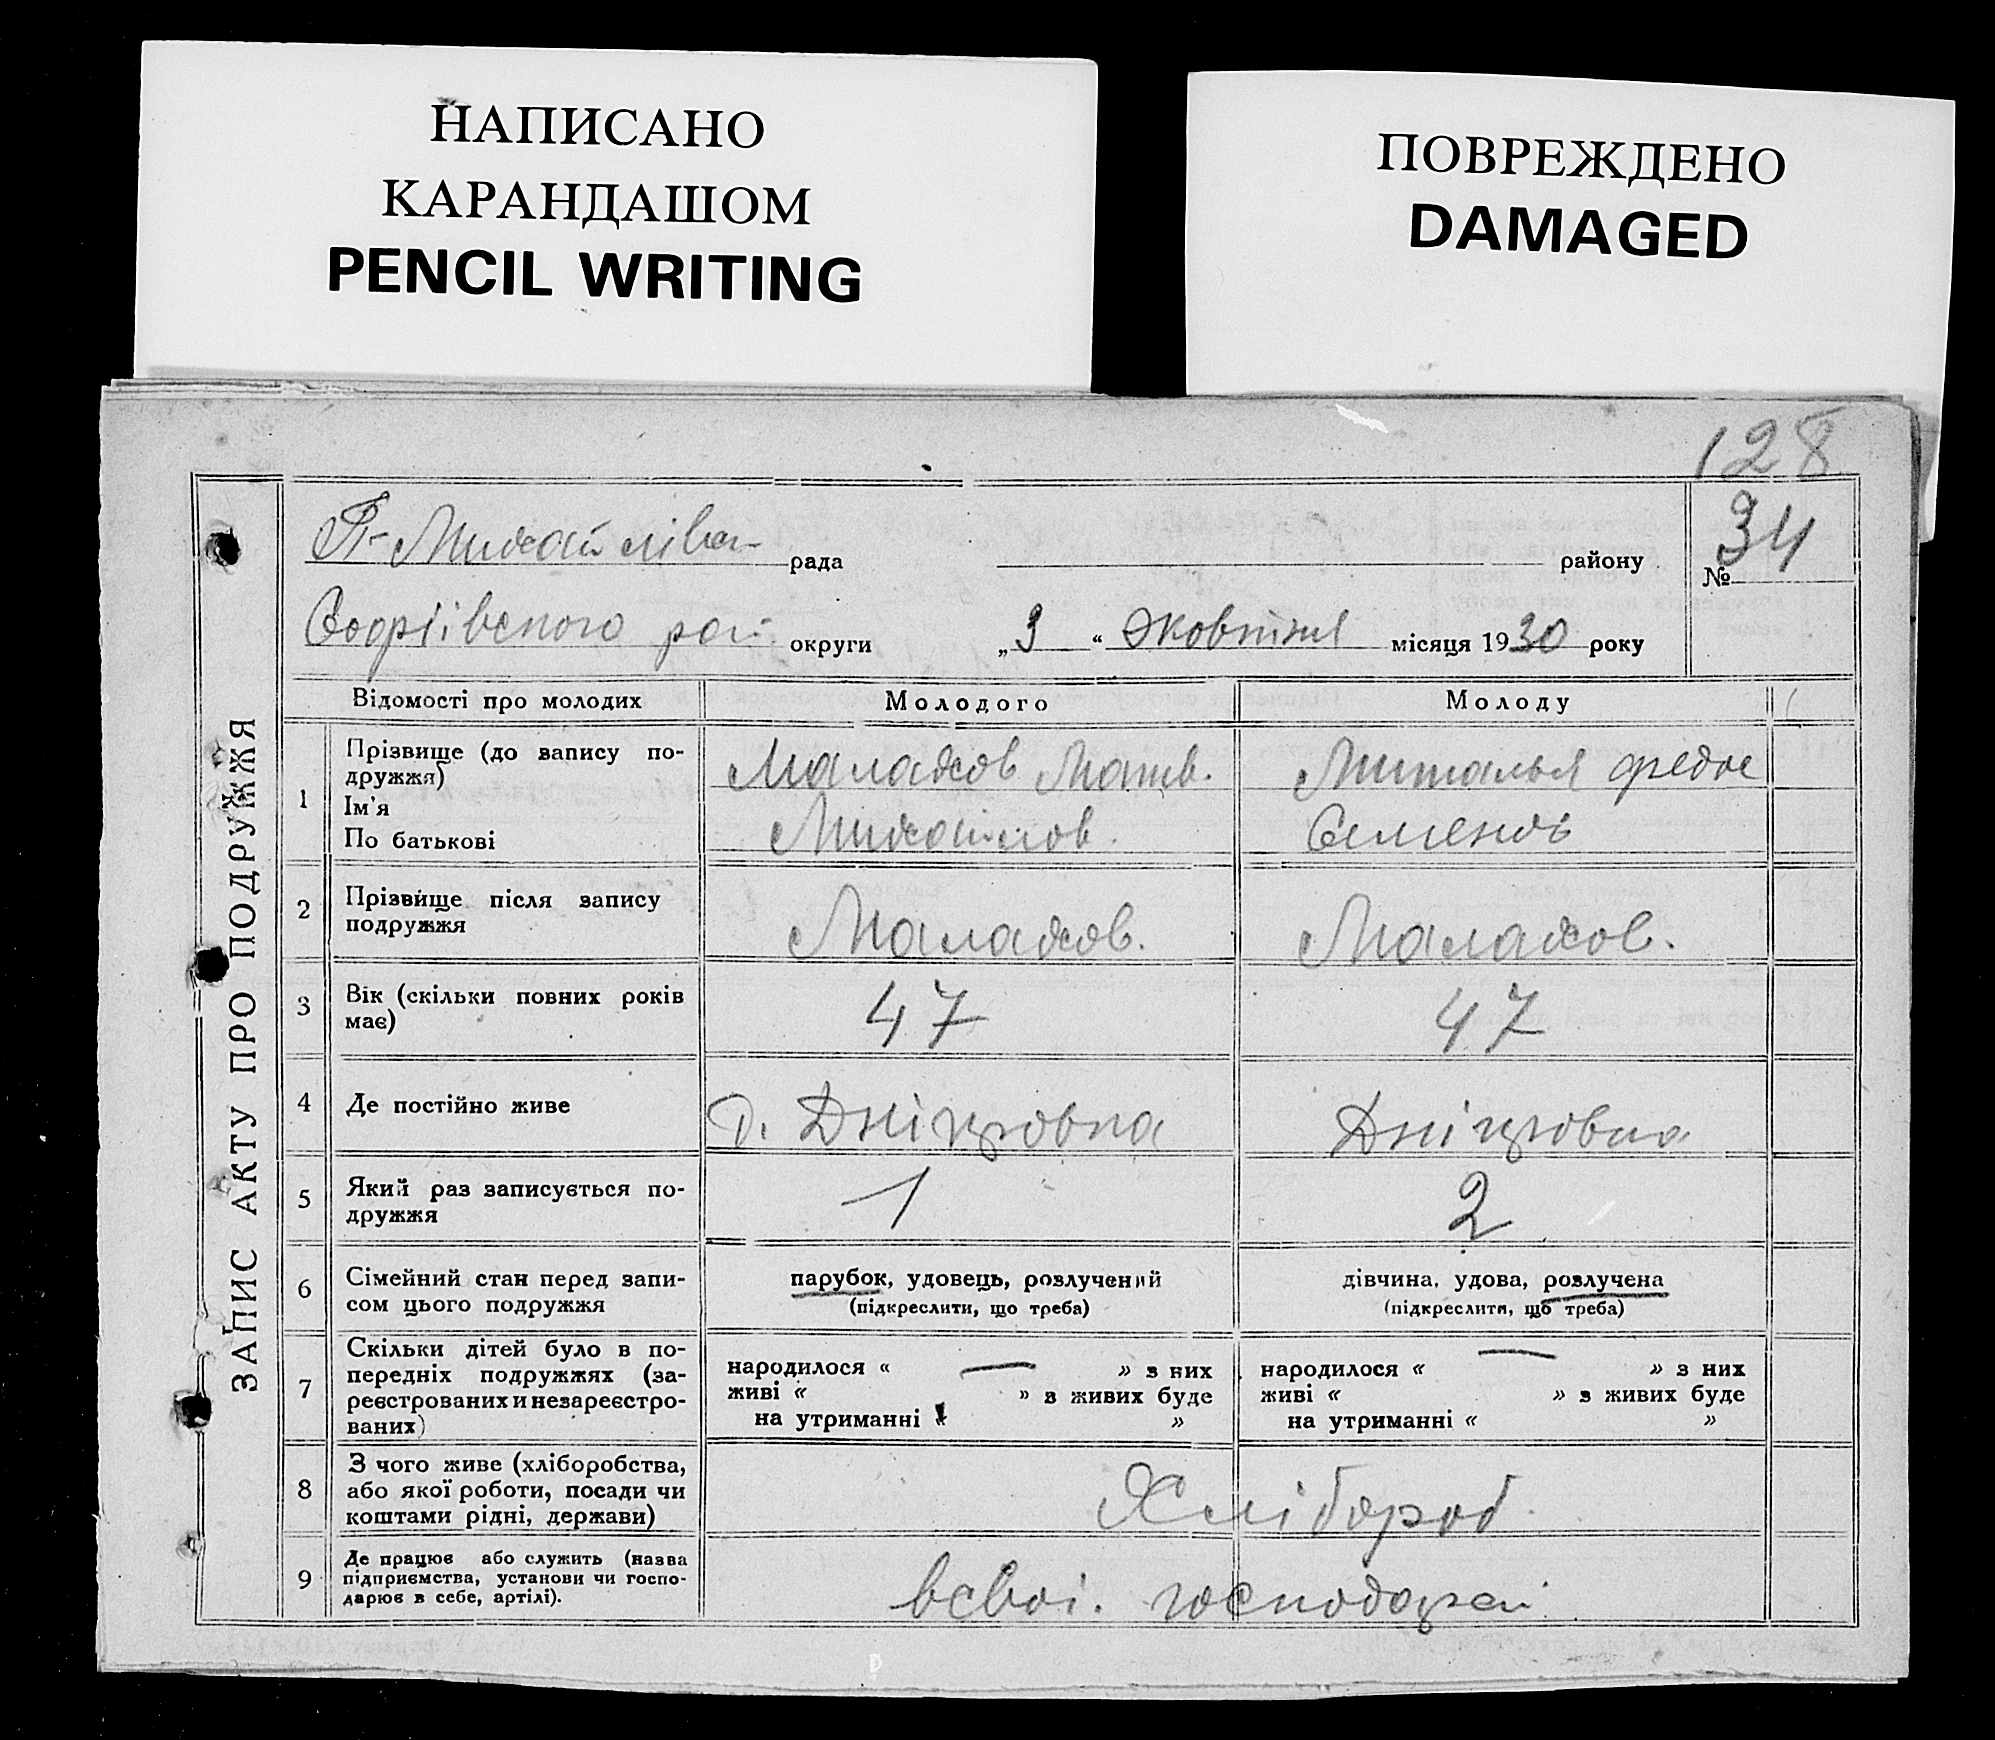 НАПИСАНО
КАРАНДАШОМ
PENCIL WRITING
ПОВРЕЖДЕНО
DAMAGED
128
рада району № 34
округи „ 3 “ Жовтня місяця 1930 року
ЗАПИС АКТУ ПРО ПОДРУЖЖЯ
Відомості про молодих Молодого Молоду
1 Прізвище (до запису подружжя) Ім'я По батькові
Малахов Матв.
Михайлов.
Семенов
2 Прізвище після запису подружжя
Малахов. Малахов.
3 Вік (скільки повних років має) 47 47
4 Де постійно живе
Д. Дніпровка Дніпровка
5 Який раз записується подружжя 1 2
6 Сімейний стан перед записом цього подружжя
парубок, удовець, розлучений дівчина, удова, розлучена
(підкреслити, що треба) (підкреслити, що треба)
7 Скільки дітей було в попередніх подружжях (зареєстрованих и незареєстрованих)
народилося « — » з них народилося « — » з них
живі « » з живих буде живі « » з живих буде
на утриманні « » на утриманні « »
8 З чого живе (хліборобства, або якої роботи, посади чи коштами рідні, держави)
Хлібороб
9 Де працює або служить (назва підприємства, установи чи господарює в себе, артілі).
всвоі. господар